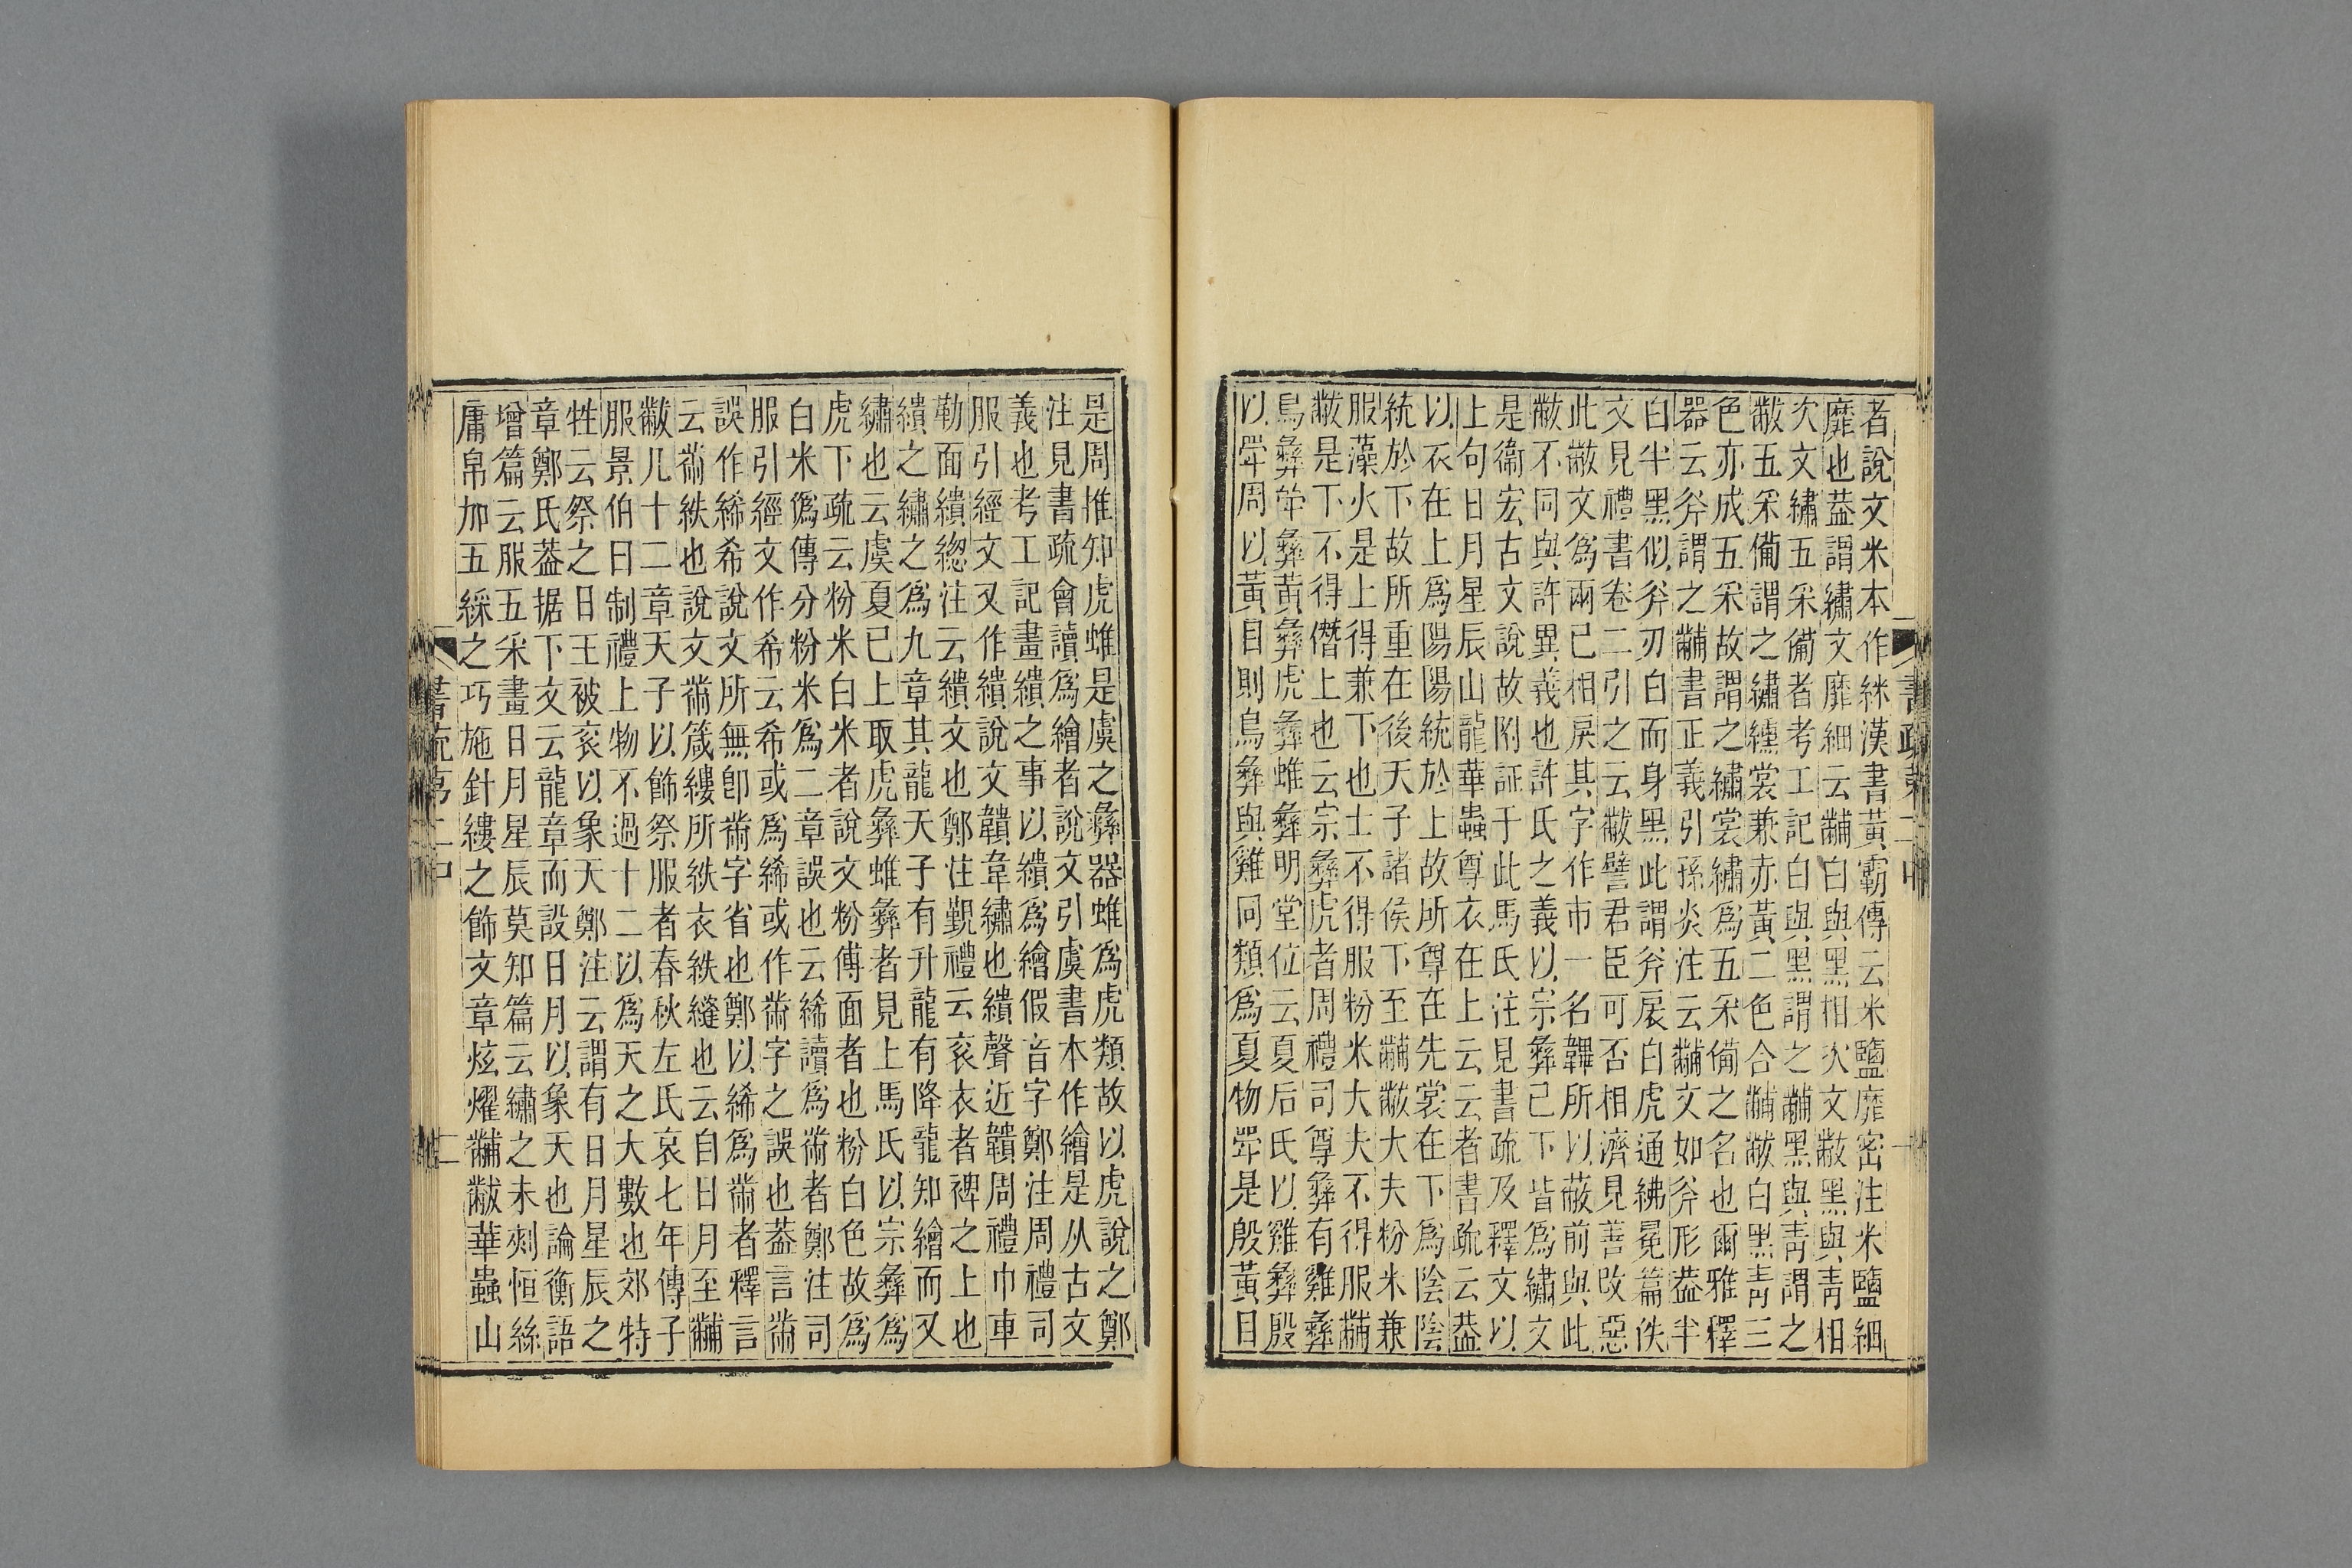 者說文米本作絑漢書黃霸傳云米鹽靡密注米鹽細
靡也葢謂繡文靡細云黼白與黑相次文黻黑與靑相
次文繡五采備者考工記白與黑謂之黼黑與靑謂之
黻五采備謂之繡纁裳兼赤黃二色合黼黻白黑靑三
色亦成五采故謂之繡裳繡爲五采備之名也爾雅釋
器云斧謂之黼書正義引孫炎注云黼文如斧形葢半
白半黑似斧刃白而身黑此謂斧扆白虎通紼冕篇佚
文見禮書卷二引之云黻譬君臣可否相濟見善改惡
此黻文爲兩已相戾其字作巿一名韠所以蔽前與此
黻不同與許異義也許氏之義以宗彝已下皆爲繡文
是衞宏古文說故附証于此馬氏注見書疏及釋文以
上句日月星辰山龍華蟲尊衣在上云云者書疏云葢
以衣在上爲陽陽統於上故所尊在先裳在下爲陰陰
統於下故所重在後天子諸侯下至黼黻大夫粉米兼
服藻火是上得兼下也士不得服粉米大夫不得服黼
黻是下不得僭上也云宗彝虎者周禮司尊彝有雞彝
鳥彝斝彝黃彝虎彝蜼彝明堂位云夏后氏以雞彝殷
以斝周以黃目則鳥彝與雞同類爲夏物斝是殷黃目
是周推知虎蜼是虞之彝器蜼爲虎類故以虎說之鄭
注見書疏會讀爲繪者說文引虞書本作繪是从古文
義也考工記畫繢之事以繢爲繪假音字鄭注周禮司
服引經文又作繢說文韇韋繡也繢聲近韇周禮巾車
勒面繢緫注云繢文也鄭注覲禮云衮衣者裨之上也
繢之繡之爲九章其龍天子有升龍有降龍知繪而又
繡也云虞夏已上取虎彝蜼彝者見上馬氏以宗彝爲
虎下疏云粉米白米者說文粉傅面者也粉白色故爲
白米僞傳分粉米爲二章誤也云絺讀爲黹者鄭注司
服引經文作希云希或爲絺或作黹字之誤也葢言黹
誤作絺希說文所無卽黹字省也鄭以絺爲黹者釋言
云黹紩也說文黹箴縷所紩衣紩縫也云自日月至黼
黻凡十二章天子以飾祭服者春秋左氏哀七年傳子
服景伯曰制禮上物不過十二以爲天之大數也郊特
牲云祭之日王被衮以象天鄭注云謂有日月星辰之
章鄭氏葢据下文云龍章而設日月以象天也論衡語
增篇云服五采畫日月星辰莫知篇云繡之未刺恒絲
庸帛加五綵之巧施針縷之飾文章炫燿黼黻華蟲山